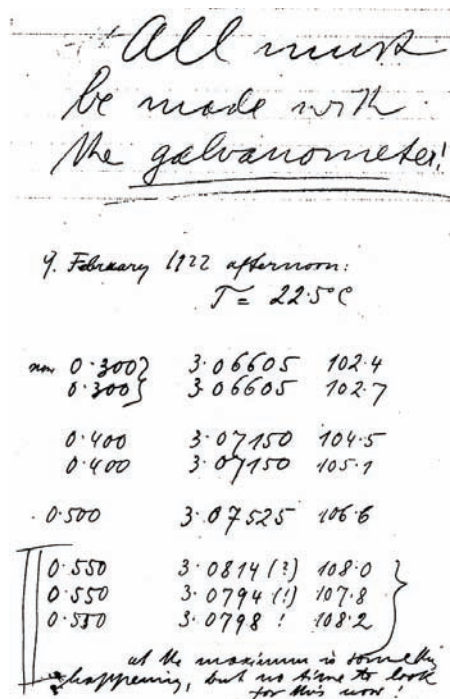 All must
be made with
the galvanometer!
9. February 1922 afternoon:
T = 22.5°C
0.300} 3.06605 102.4
0.300} 3.06605 102.7
0.400 3.07150 104.5
0.400 3.07150 105.1
0.500 3.07525 106.6
0.550 3.0814 (?) 108.0
0.550 3.0794 (!) 107.8
0.550 3.0798 ! 108.2
at the maximum is something
happening, but no time to look
for this now!